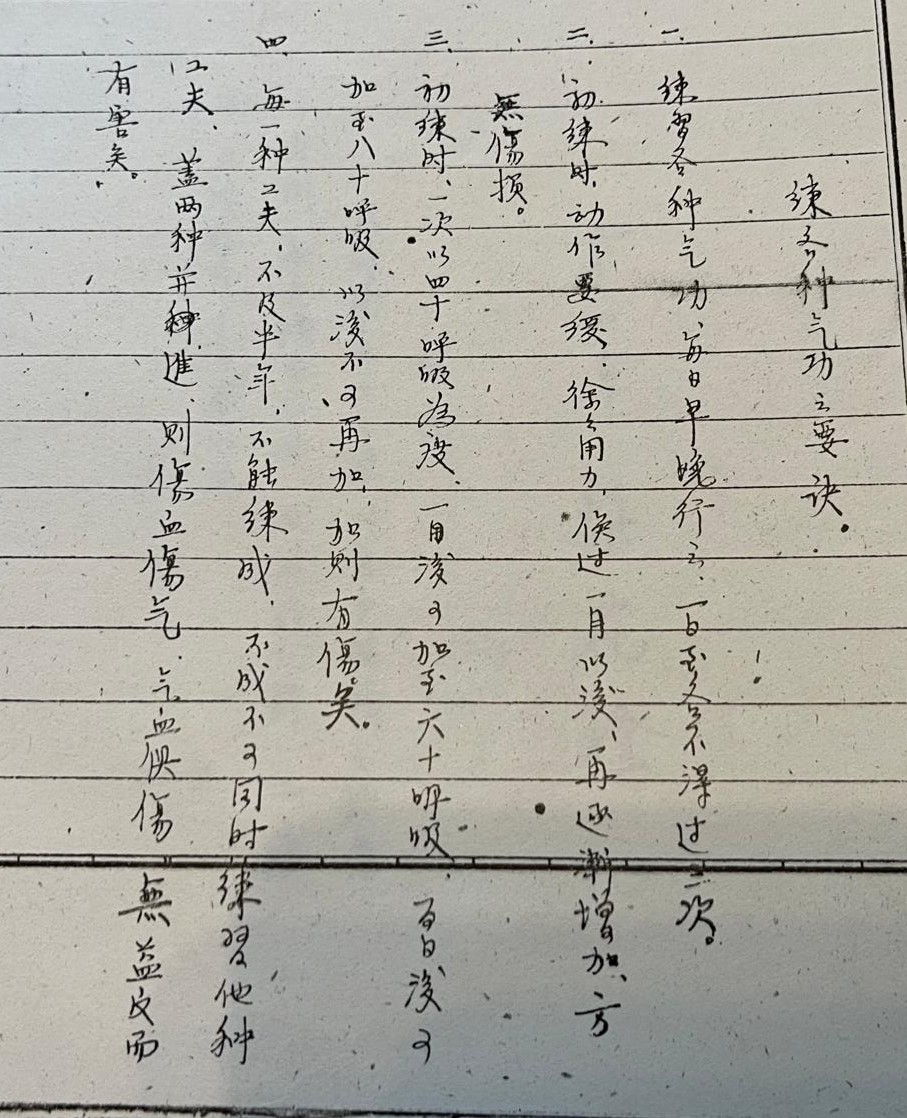 練各种气功之要诀。
一、練習各种气功、每日早晚行之、一日至多不得过三次。
二、初練时、动作要缓、徐徐用力、候过一月以後、再逐漸增加、方
無傷损。
三、初練时、一次以四十呼吸為度、一月後可加至六十呼吸、百日後可
加至八十呼吸、以後不可再加、加则有傷矣。
四、每一种工夫、不及半年、不能練成、不成不可同时練習他种
工夫、蓋两种并種進、则傷血傷气、气血俱傷、無益反而
有害矣。